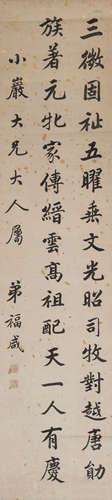 三徵固祉五曜垂文光昭司牧對越唐勛
族著元北家傳縉雲高祖配天一人有慶
小巖大兄大人屬
弟福咸